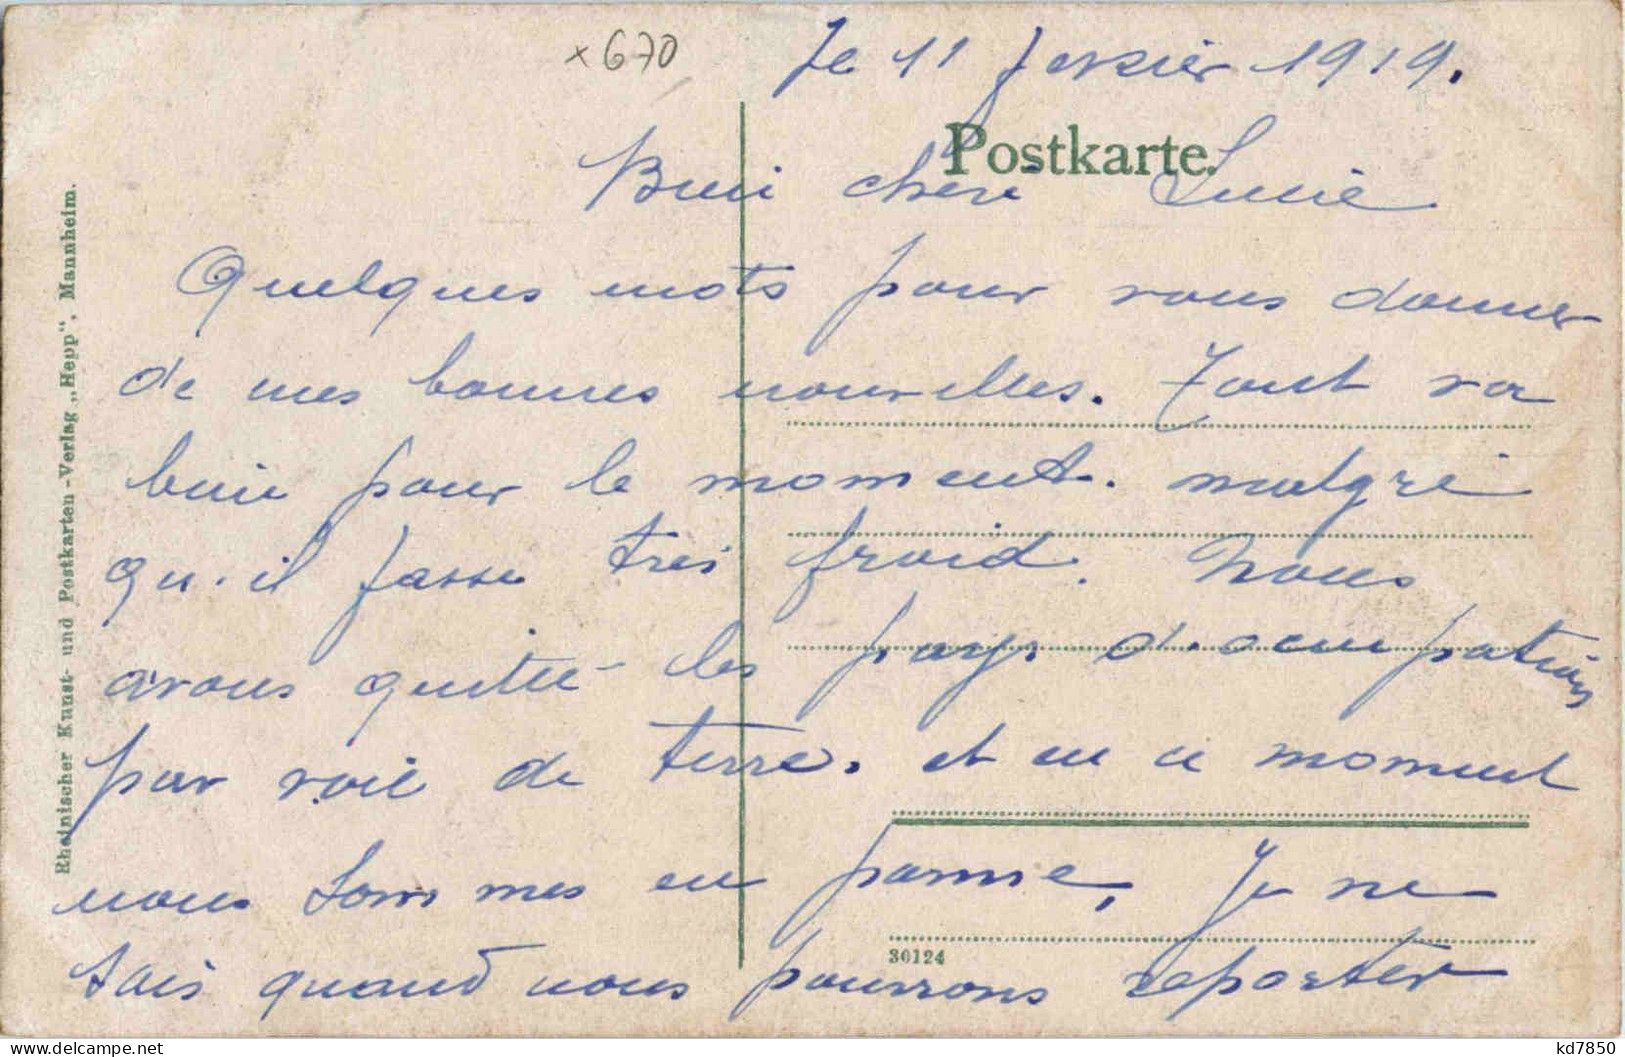 x 670
le 11 fevrier 1919.
Postkarte.
Bien chere Lucie
Quelques mots pour vous donner
de mes bonnes nouvelles. Tout va
bien pour le moment. malgré
qu'il fasse très froid. Nous
avons quitté les pays d'occupation
par voie de terre. et en ce moment
nous sommes en panne, Je ne
sais quand nous pourrons reporter
30124
Rheinischer Kunst- und Postkarten-Verlag „Hepp“, Mannheim.
kd7850